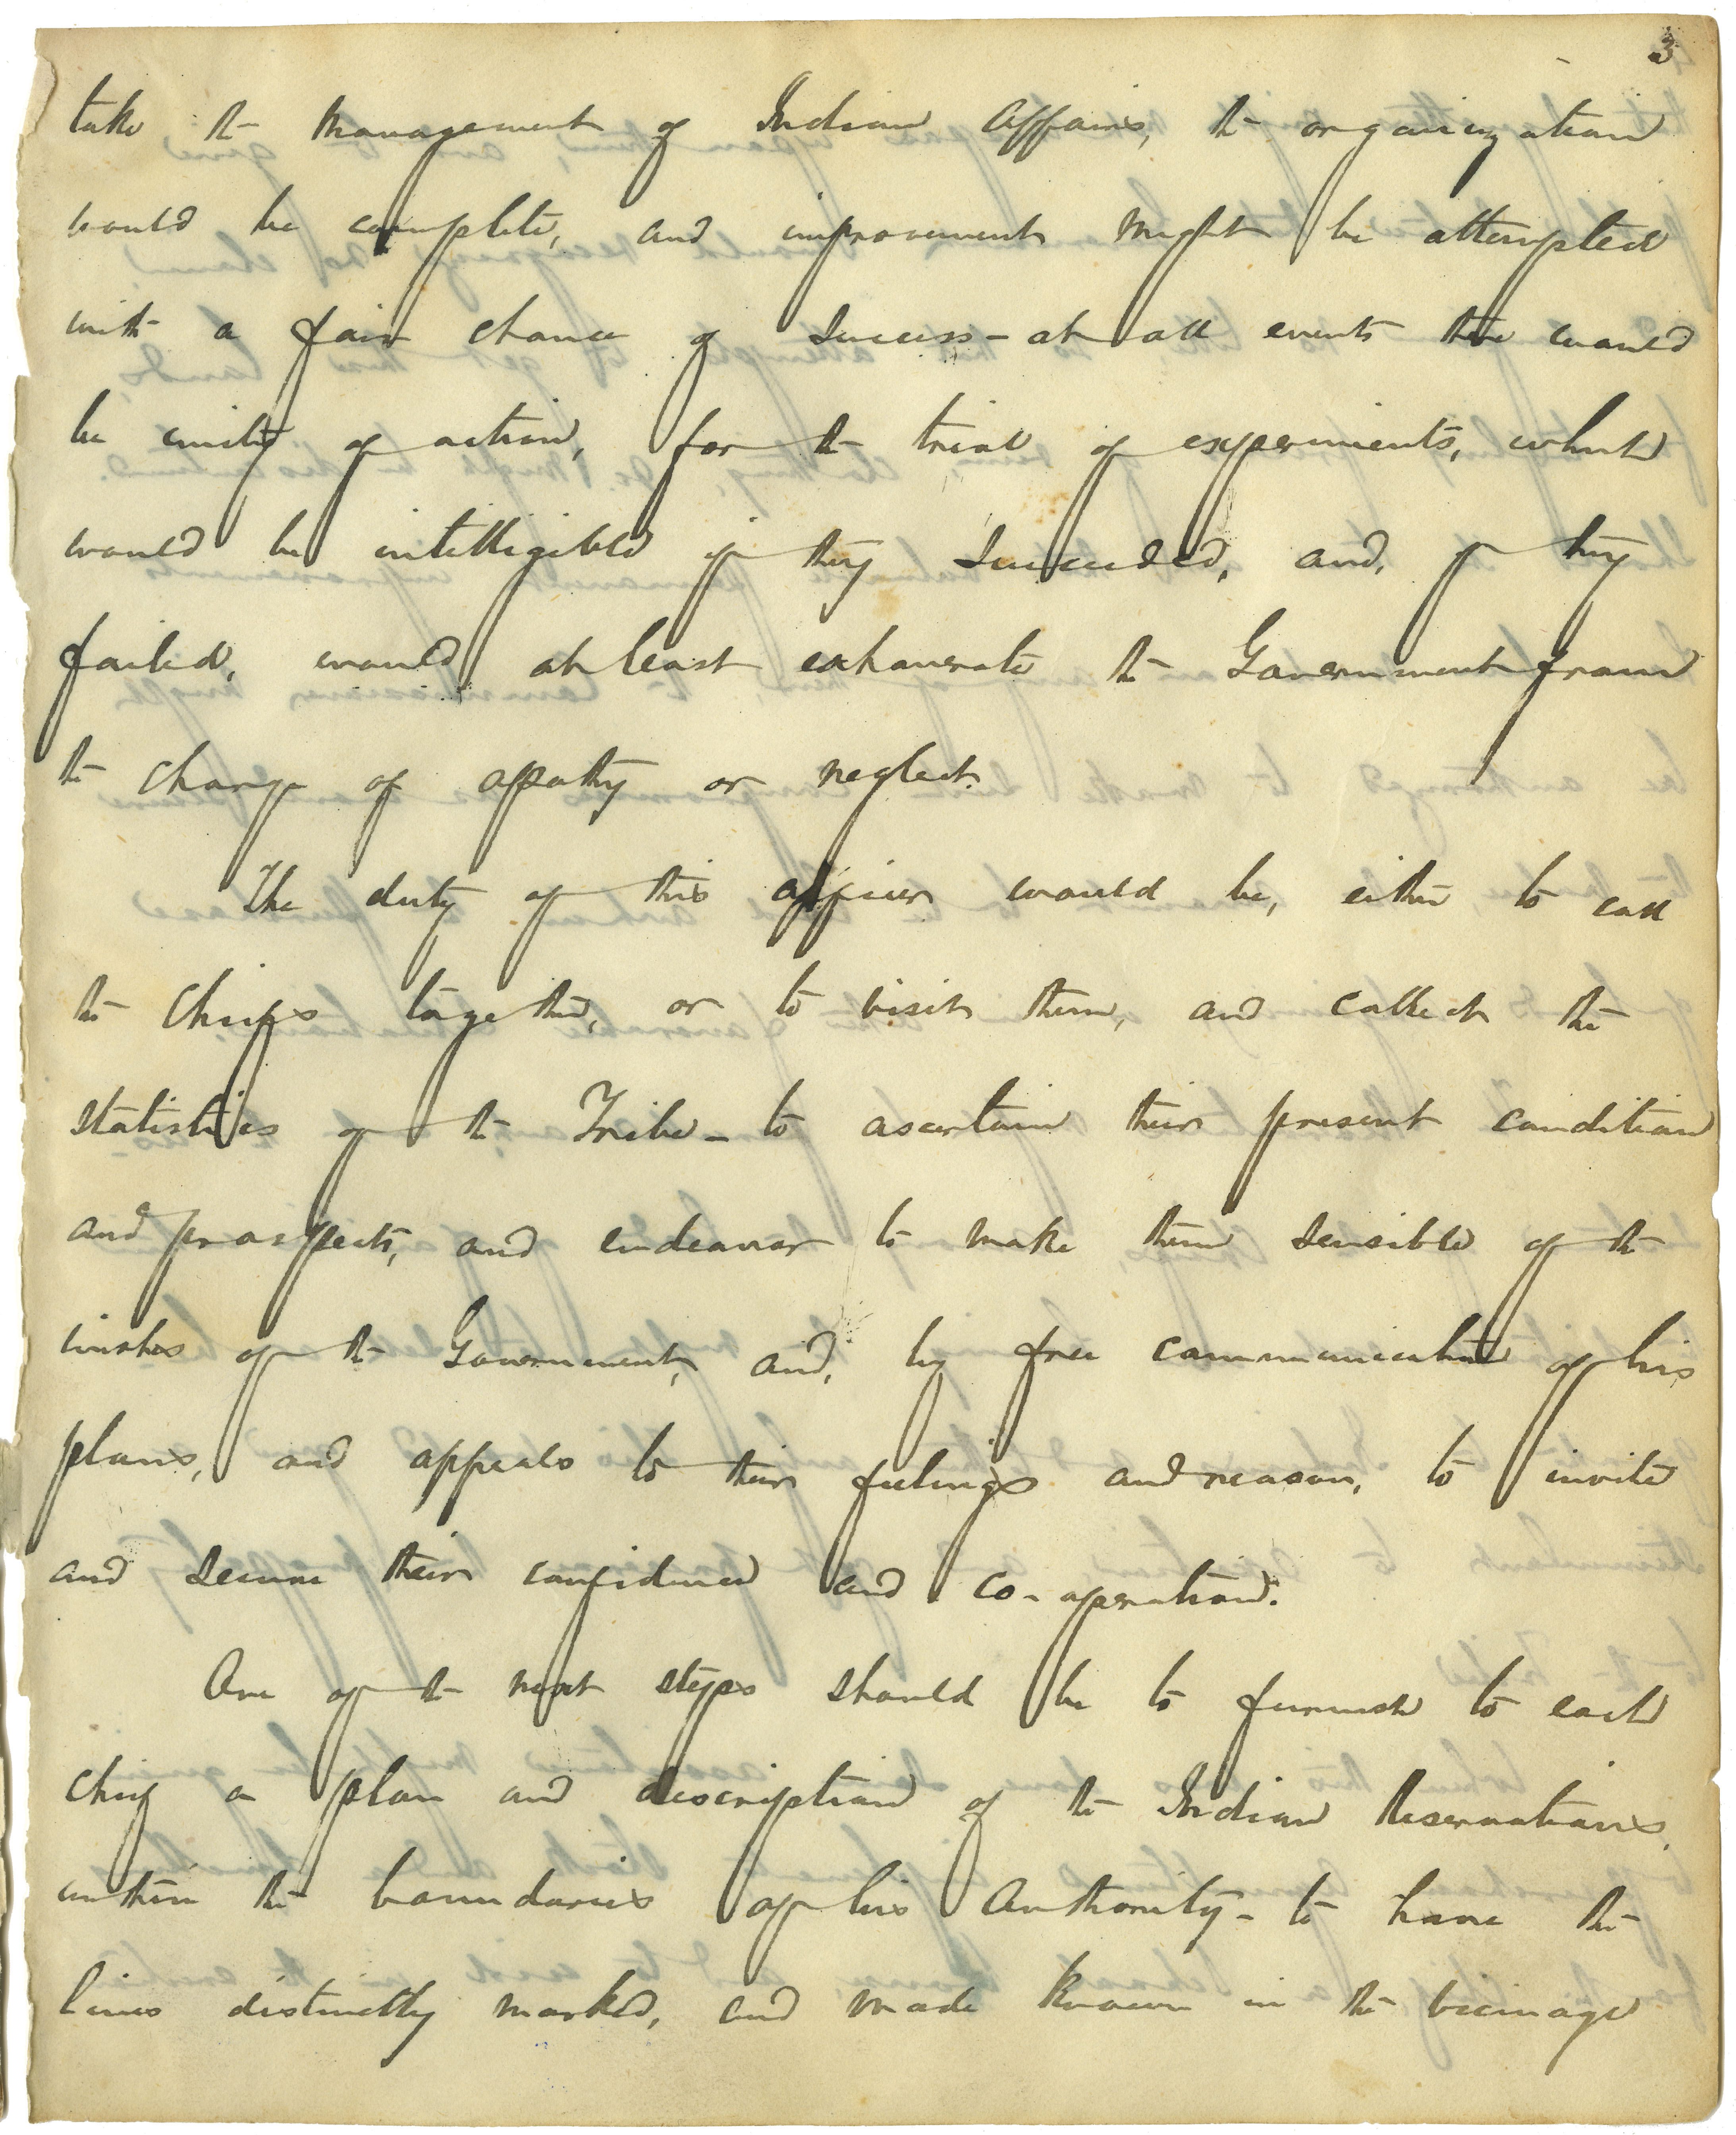 3
take the management of Indian Affairs, the organization
would be complete, and improvement might be attempted
with a fair chance of success - at all events there would
be unity of action, for the trial of experiments, which
would be intelligible if they succeeded, and, if they
failed, would at least exhonerate the Government from
the charge of apathy or neglect.
The duty of this officer would be, either to call
the Chiefs together, or to visit them, and collect the
statistics of the Tribe - to ascertain their present condition
and prospects, and endeavor to make them sensible of the
wishes of the Government, and, by free communication of his
plans, and appeals to their feelings and reason, to invite
and secure their confidence and co-operation.
One of the next steps should be to furnish to each
chief a plan and description of the Indian Reservations,
within the boundaries of his Authority - to have the
lines distinctly marked, and made known in the vicinage